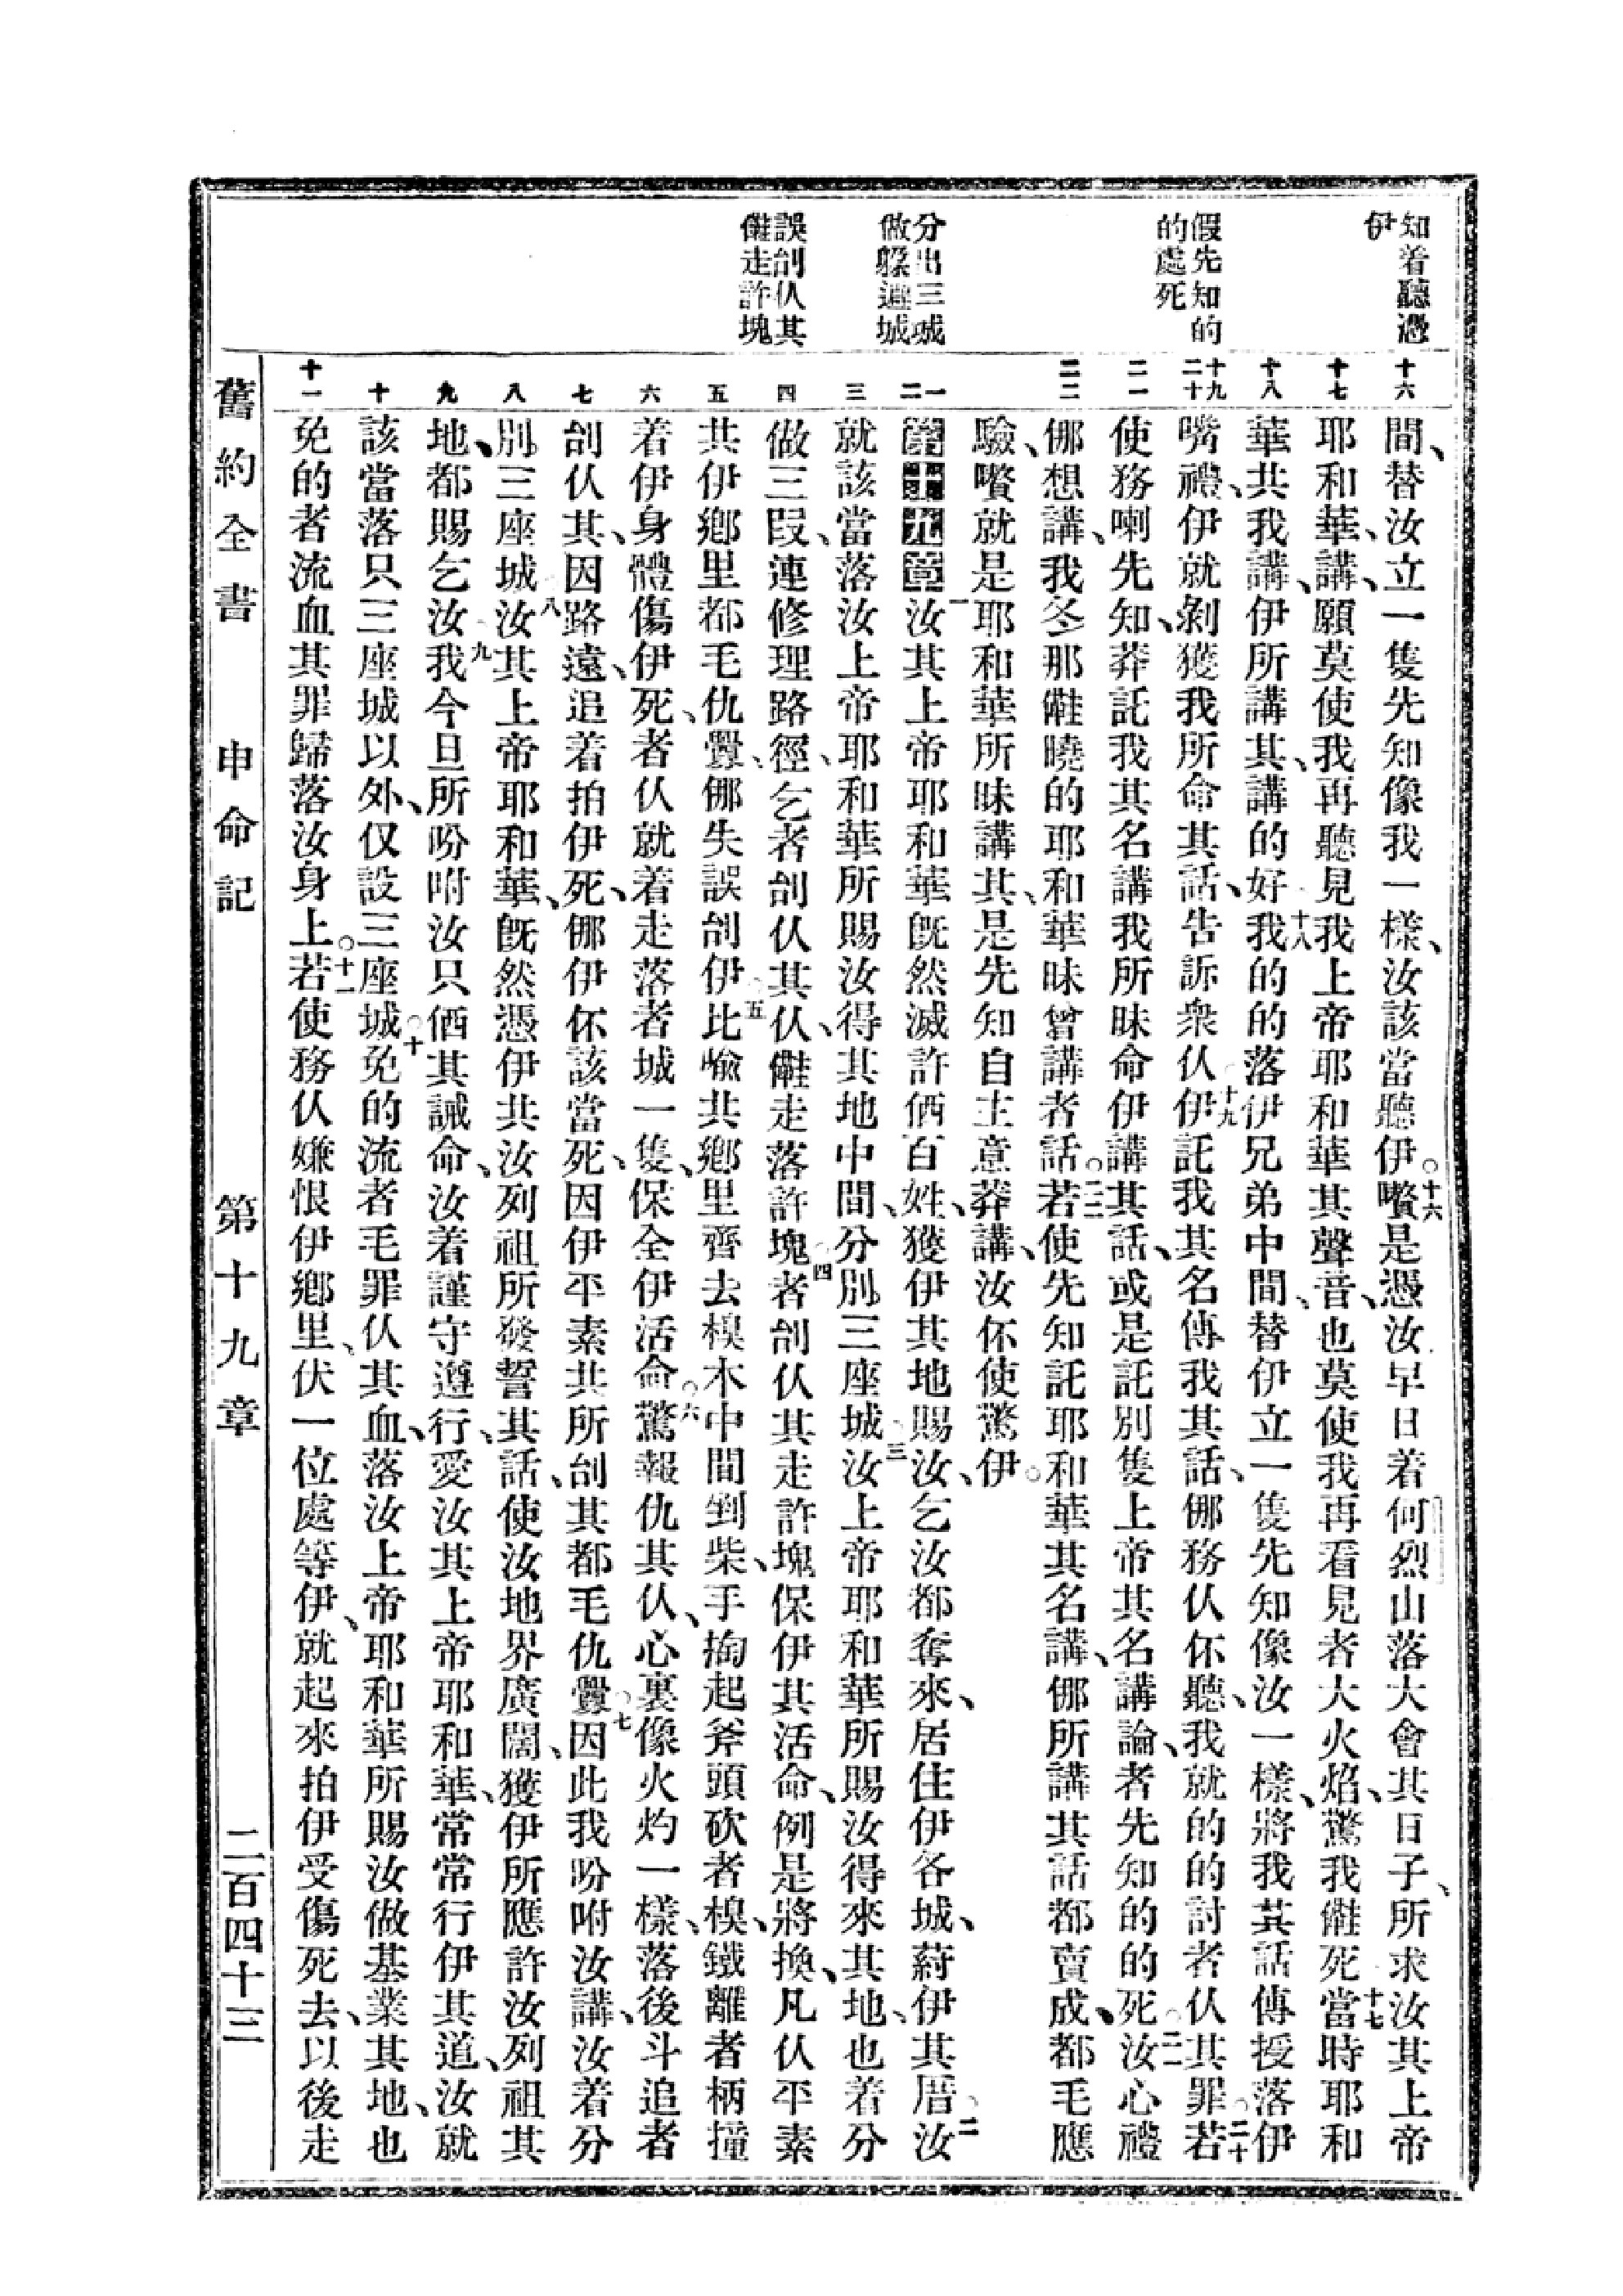 知着聽憑
伊
假先知的
的處死
分出三城
做躱避城
誤刣仈其
儺走許塊
十六
十七
十八
十九
二十
二一
二二
一
二
三
四
五
六
七
八
九
十
十一
間、替汝立一隻先知像我一樣、汝該當聽伊。十六是憑汝早日着何烈山落大會其日子、所求汝其上帝
耶和華、講、願莫使我再聽見我上帝耶和華其聲音、也莫使我再看見者大火焰、驚我死十七當時耶和
華共我講、伊所講其、講的好十八我的的落伊兄弟中間、替伊立一隻先知像汝一樣、將我其話傳授落伊
嘴禮、伊就剝獲我所命其話、告訴衆仈十九伊託我其名傳我其話、倻務仈伓聽、我就的的討者仈其罪二十若
使務喇先知、莽託我其名講我所昧命伊講其話、或是託別隻上帝其名講論、者先知的的死二一汝心禮
倻想講、我冬那曉的耶和華昧曾講者話。二二若使先知託耶和華其名講、倻所講其話都賣成、都毛應
驗、就是耶和華所昧講其、是先知自主意莽講、汝伓使驚伊。
第十九章一汝其上帝耶和華旣然滅許百姓、獲伊其地賜汝、乞汝都奪來、居住伊各城、葤伊其厝二汝
就該當落汝上帝耶和華所賜汝得其地中間、分別三座城三汝上帝耶和華所賜汝得來其地、也着分
做三段、連修理路徑、乞者刣仈其仈、走落許塊四者刣仈其走許塊保伊其活命、例是將換、凡仈平素
共伊鄕里都毛仇釁、倻失誤刣伊五比喻共鄕里齊去模木中間剉柴、手掏起斧頭砍者模、鐵離者柄撞
着伊身體傷伊死、者仈就着走落者城一隻、保全伊活命。六驚報仇其仈、心裏像火灼一樣、落後斗追者
刣仈其、因路遠、追着拍伊死、倻伊伓該當死、因伊平素共所刣其都毛仇釁七因此我吩咐汝講、汝着分
別三座城八汝其上帝耶和華、旣然憑伊共汝列祖所發誓其話、使汝地界廣闊、獲伊所應許汝列祖其
地、都賜乞汝九我今旦所吩咐汝只其誡命、汝着謹守遵行、愛汝其上帝耶和華、常常行伊其道、汝就
該當落只三座城以外、仅設三座城十免的流者毛罪仈其血、落汝上帝耶和華所賜汝做基業其地、也
免的者流血其罪歸落汝身上。十一若使務仈嫌恨伊鄕里、伏一位處等伊、就起來拍伊受傷死去、以後走
舊約全書　申命記　第十九章　二百四十三